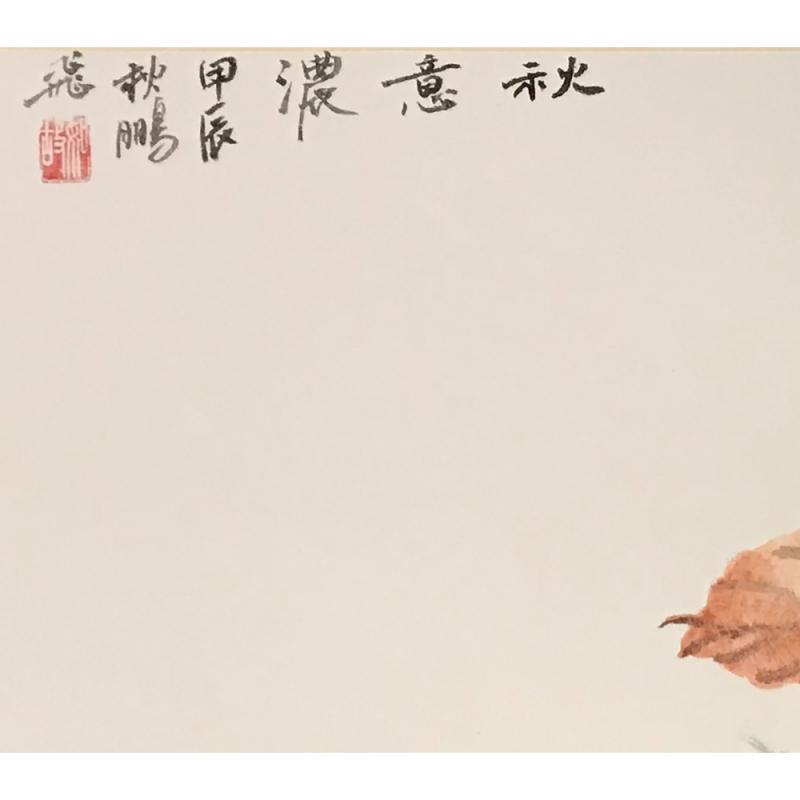 秋
意
濃
甲辰
秋鵬
飛